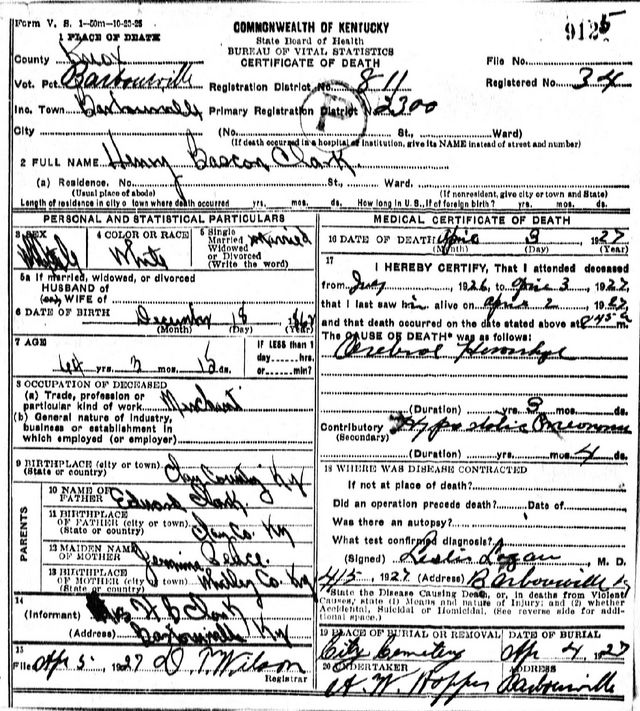 Form V. S. 1-50m-10-23-25
COMMONWEALTH OF KENTUCKY
State Board of Health
BUREAU OF VITAL STATISTICS
CERTIFICATE OF DEATH
9125
1 PLACE OF DEATH
County Knox
File No.
Vot. Pct. Barbourville
Registration District No. 811
Registered No. 34
Inc. Town Barbourville
Primary Registration District No. 2300
City
(No. St., Ward)
(If death occurred in a hospital or institution, give its NAME instead of street and number)
2 FULL NAME Henry Bascom Clark
(a) Residence. No. St., Ward.
(Usual place of abode) (If nonresident, give city or town and State)
Length of residence in city or town where death occurred yrs. mos. ds. How long in U.S., if of foreign birth? yrs. mos. ds.
PERSONAL AND STATISTICAL PARTICULARS
3 SEX Male
4 COLOR OR RACE White
5 Single Married Widowed or Divorced (Write the word) Married
5a If married, widowed, or divorced
HUSBAND of
(or) WIFE of
6 DATE OF BIRTH December 18 1862
(Month) (Day) (Year)
7 AGE
64 yrs. 3 mos. 15 ds.
IF LESS than 1 day----hrs. or----min?
8 OCCUPATION OF DECEASED
(a) Trade, profession or particular kind of work Merchant
(b) General nature of Industry, business or establishment in which employed (or employer)
9 BIRTHPLACE (city or town) (State or country) Clay County Ky
PARENTS
10 NAME OF FATHER Edward Clark
11 BIRTHPLACE OF FATHER (city or town) (State or country) Clay Co. Ky
12 MAIDEN NAME OF MOTHER
13 BIRTHPLACE OF MOTHER (city or town) (State or country) Whitley Co. Ky
14
(Informant) Mrs H B Clark
(Address) Barbourville Ky
15
Filed Apr 5 1927 D T Wilson
Registrar
MEDICAL CERTIFICATE OF DEATH
16 DATE OF DEATH April 3 1927
(Month) (Day) (Year)
17
I HEREBY CERTIFY, That I attended deceased
from July, 1926, to April 3, 1927,
that I last saw him alive on April 2, 1927
and that death occurred on the date stated above at 845 a
The CAUSE OF DEATH* was as follows:
Cerebral Hemorrhage
(Duration) yrs. 9 mos. ds.
Contributory (Secondary) Hypostatic Pneumonia
(Duration) yrs. mos. 4 ds.
18 WHERE WAS DISEASE CONTRACTED
If not at place of death?
Did an operation precede death? Date of
Was there an autopsy?
What test confirmed diagnosis?
(Signed) Leslie Logan M. D.
4/5, 1927 (Address) Barbourville Ky
*State the Disease Causing Death, or, in deaths from Violent Causes, state (1) Means and nature of Injury; and (2) whether Accidental, Suicidal or Homicidal. (See reverse side for additional space.)
19 PLACE OF BURIAL OR REMOVAL DATE OF BURIAL
City Cemetery Apr 4 1927
20 UNDERTAKER ADDRESS
A. W. Hopper Barbourville